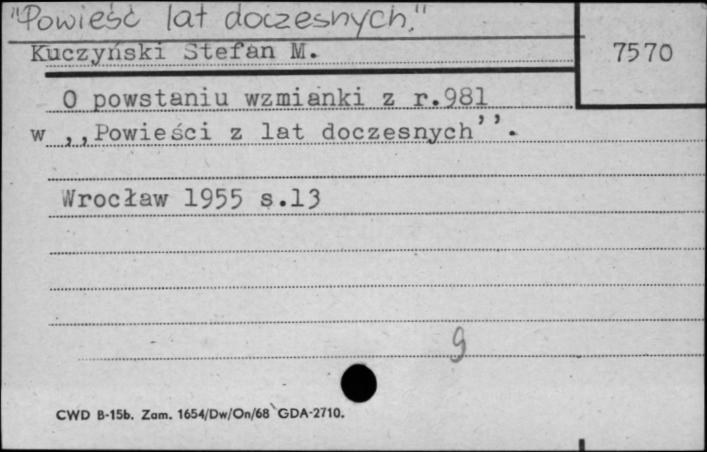 "Powieść lat doczesnych."
Kuczyński Stefan M.
7570
O powstaniu wzmianki z r.981
w ,,Powieści z lat doczesnych’’.
Wrocław 1955 s.13
g
CWD B-15b. Zam. 1654/Dw/On/68 GDA-2710.